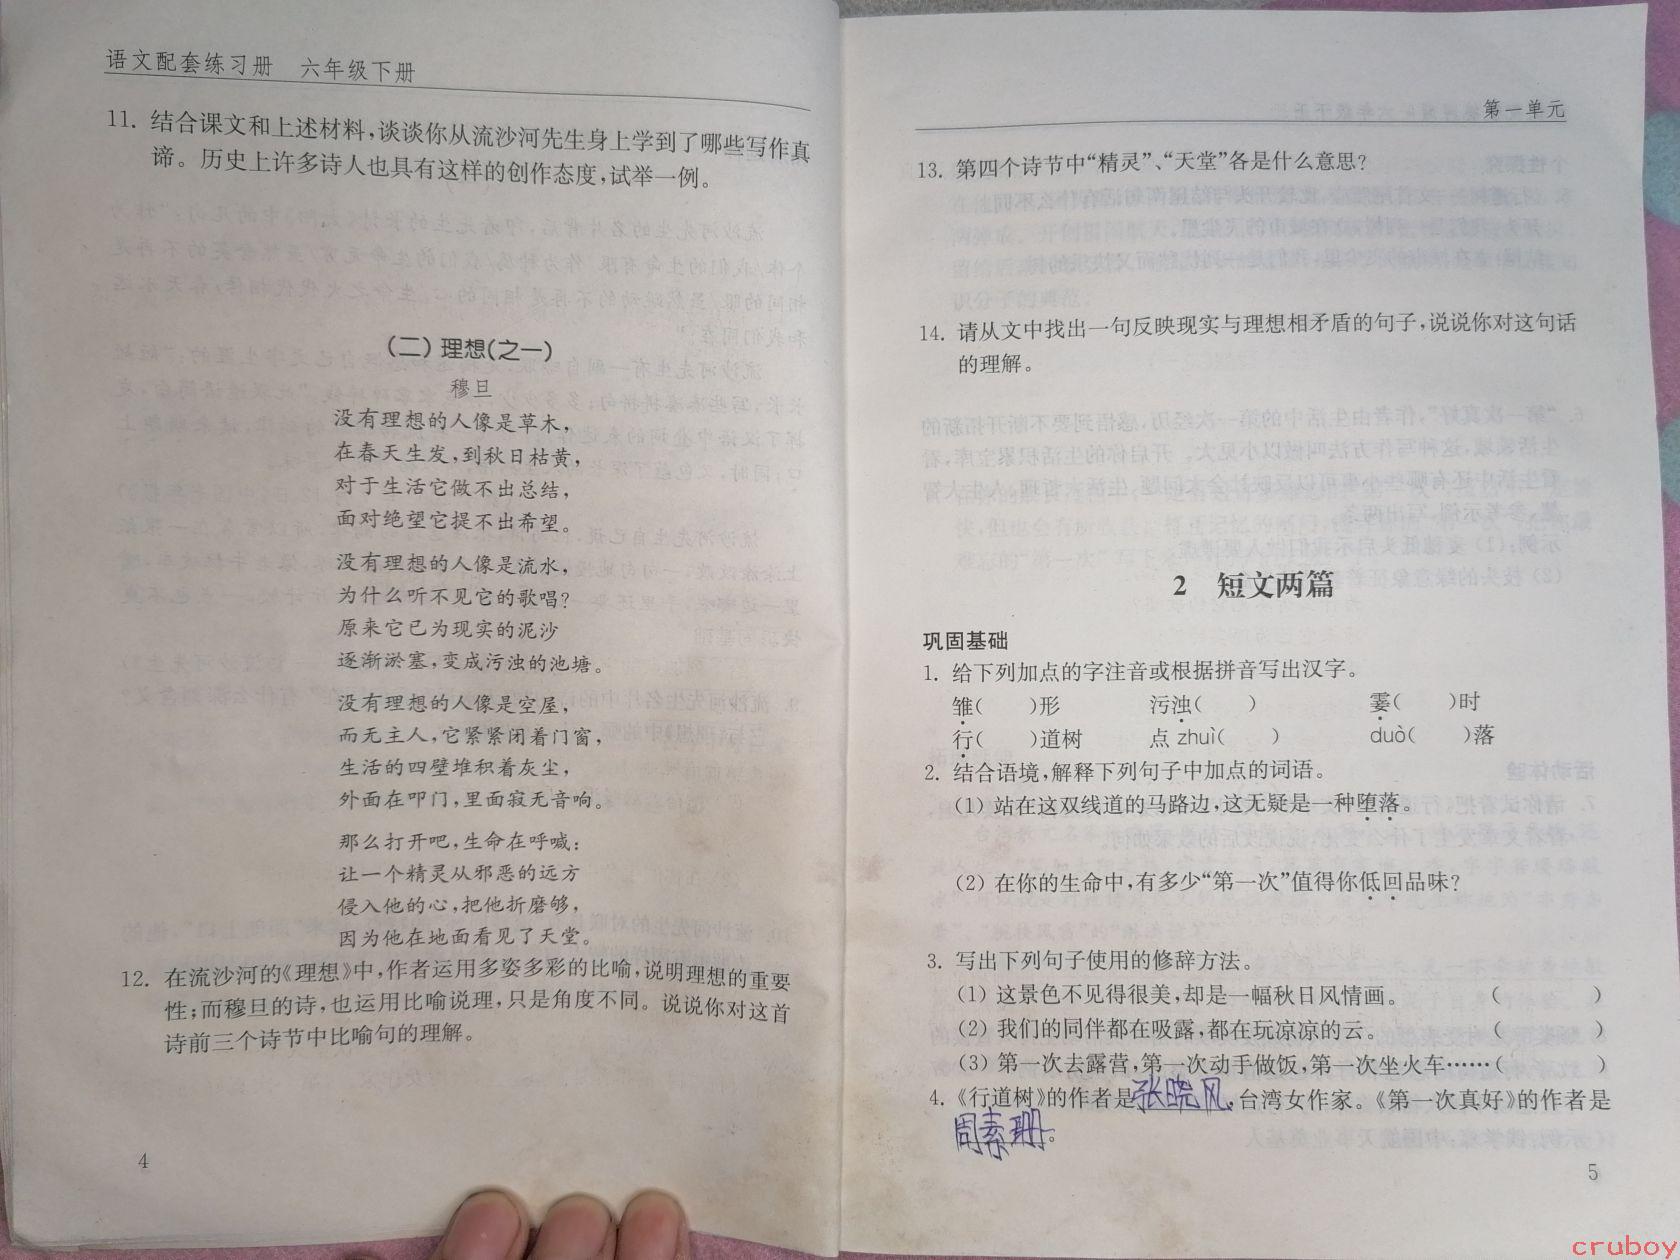 语文配套练习册 六年级下册
11. 结合课文和上述材料,谈谈你从流沙河先生身上学到了哪些写作真
谛。历史上许多诗人也具有这样的创作态度,试举一例。
(二)理想(之一)
穆旦
没有理想的人像是草木,
在春天生发,到秋日枯黄,
对于生活它做不出总结,
面对绝望它提不出希望。
没有理想的人像是流水,
为什么听不见它的歌唱?
原来它已为现实的泥沙
逐渐淤塞,变成污浊的池塘。
没有理想的人像是空屋,
而无主人,它紧紧闭着门窗,
生活的四壁堆积着灰尘,
外面在叩门,里面寂无音响。
那么打开吧,生命在呼喊:
让一个精灵从邪恶的远方
侵入他的心,把他折磨够,
因为他在地面看见了天堂。
12. 在流沙河的《理想》中,作者运用多姿多彩的比喻,说明理想的重要
性;而穆旦的诗,也运用比喻说理,只是角度不同。说说你对这首
诗前三个诗节中比喻句的理解。
4
第一单元
13. 第四个诗节中“精灵”、“天堂”各是什么意思?
14. 请从文中找出一句反映现实与理想相矛盾的句子,说说你对这句话
的理解。
2 短文两篇
巩固基础
1. 给下列加点的字注音或根据拼音写出汉字。
雏( )形 污浊( ) 霎( )时
行( )道树 点 zhuì( ) duò( )落
2. 结合语境,解释下列句子中加点的词语。
(1) 站在这双线道的马路边,这无疑是一种堕落。
(2) 在你的生命中,有多少“第一次”值得你低回品味?
3. 写出下列句子使用的修辞方法。
(1) 这景色不见得很美,却是一幅秋日风情画。 ( )
(2) 我们的同伴都在吸露,都在玩凉凉的云。 ( )
(3) 第一次去露营,第一次动手做饭,第一次坐火车……( )
4.《行道树》的作者是张晓风,台湾女作家。《第一次真好》的作者是
周素珊。
5
cruboy